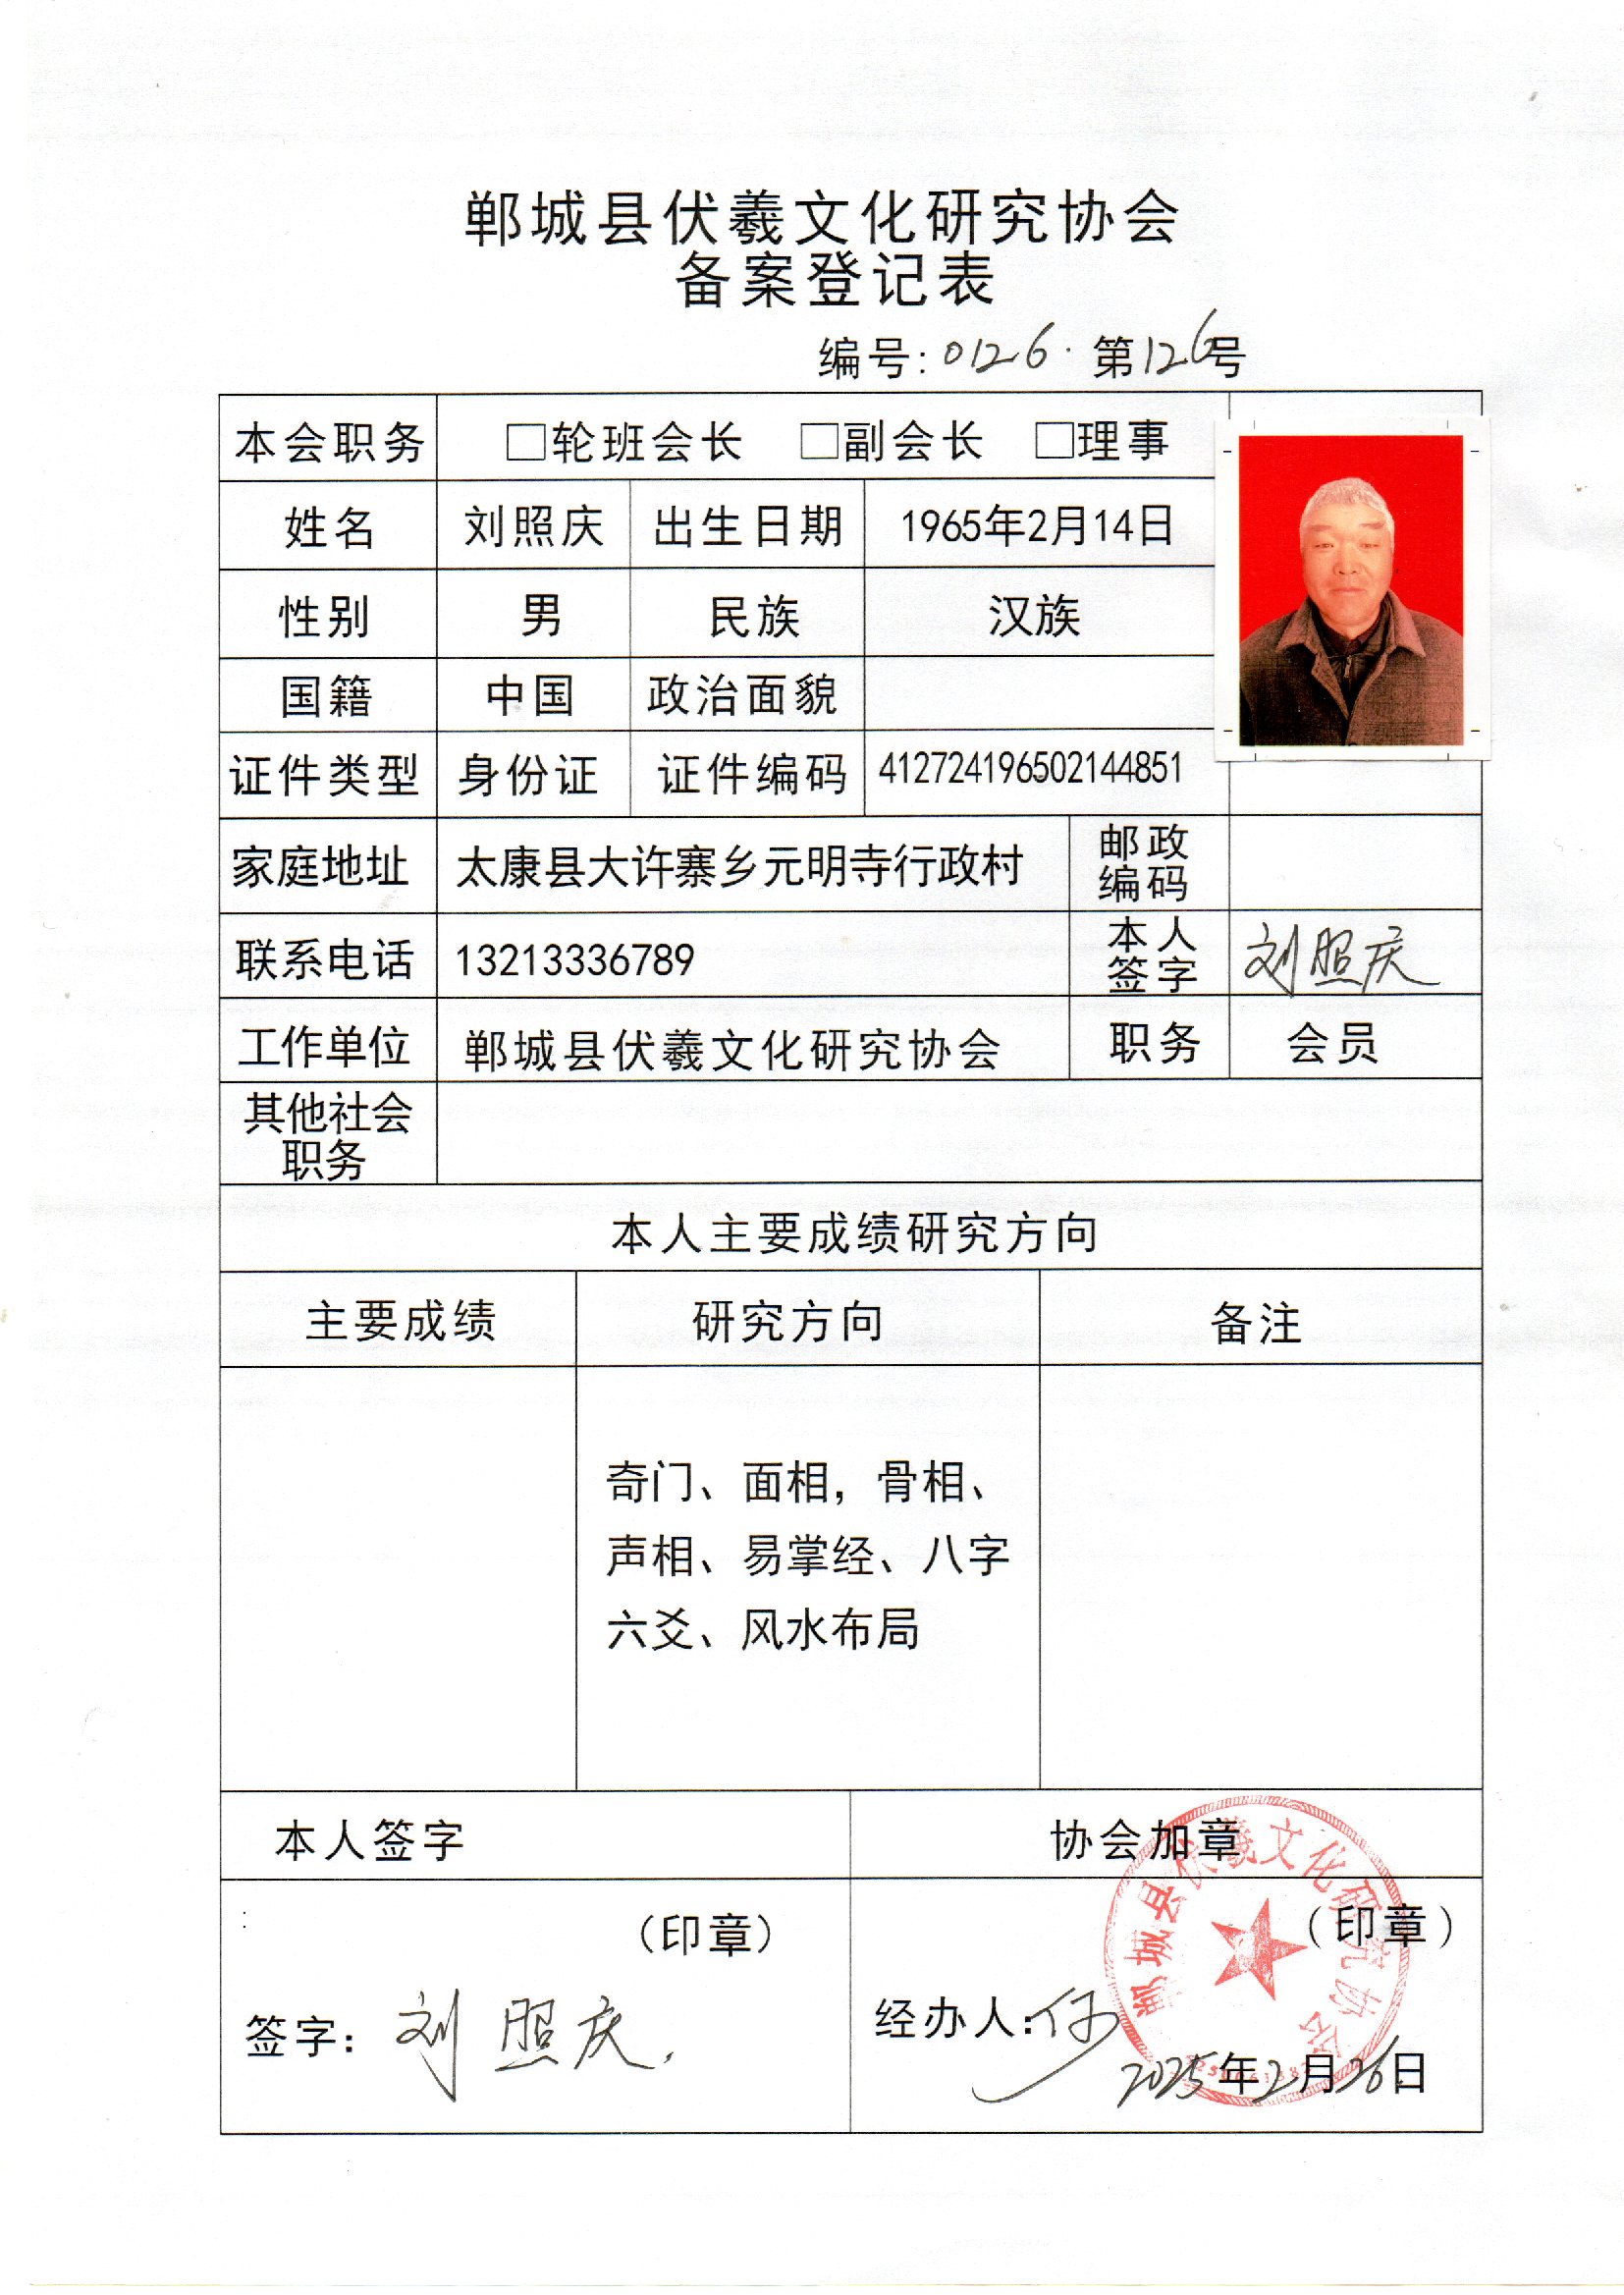 郸城县伏羲文化研究协会
备案登记表
编号:0126. 第126号
本会职务 □轮班会长 □副会长 □理事
姓名 刘照庆 出生日期 1965年2月14日
性别 男 民族 汉族
国籍 中国 政治面貌
证件类型 身份证 证件编码 412724196502144851
家庭地址 太康县大许寨乡元明寺行政村 邮政编码
联系电话 13213336789 本人签字 刘照庆
工作单位 郸城县伏羲文化研究协会 职务 会员
其他社会职务
本人主要成绩研究方向
主要成绩 研究方向 备注
奇门、面相，骨相、
声相、易掌经、八字
六爻、风水布局
本人签字 协会加章
(印章) (印章)
签字: 刘照庆. 经办人:
2025年2月26日
郸城县伏羲文化研究协会